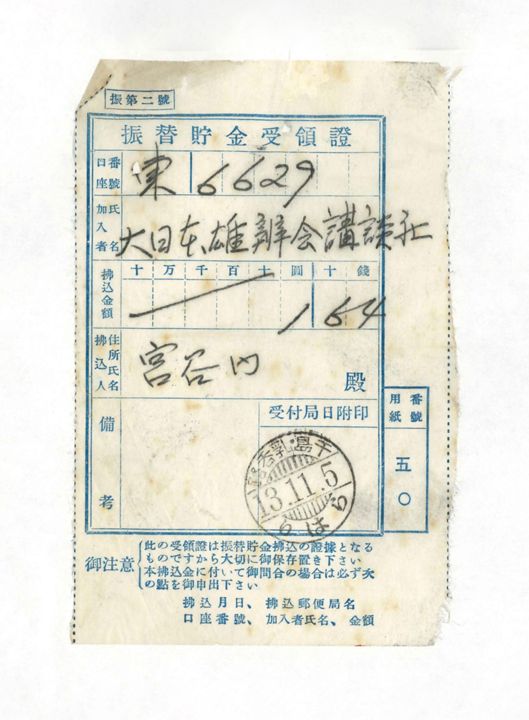 振第二號
振替貯金受領證
口座番號 東 6629
加入者氏名 大日本雄辯会講談社
十万千百十圓十錢
拂込金額 164
拂込人住所氏名 宮谷内 殿
備考
受付局日附印
千島・乳呑路
13.11.5
用紙番號
五〇
御注意
此の受領證は振替貯金拂込の證據となる
ものですから大切に御保存置き下さい
本拂込金に付いて御問合の場合は必ず次
の點を御申出下さい
拂込月日、拂込郵便局名
口座番號、加入者氏名、金額